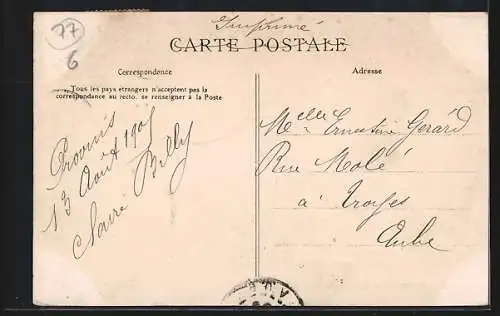 77
6
Imprimé
CARTE POSTALE
Correspondance
Tous les pays étrangers n'acceptent pas la
correspondance au recto. se renseigner à la Poste
Provins
13 Août 190
Billy
Adresse
Melle Ernestine Gérard
Rue Molé
à Troyes
Aube